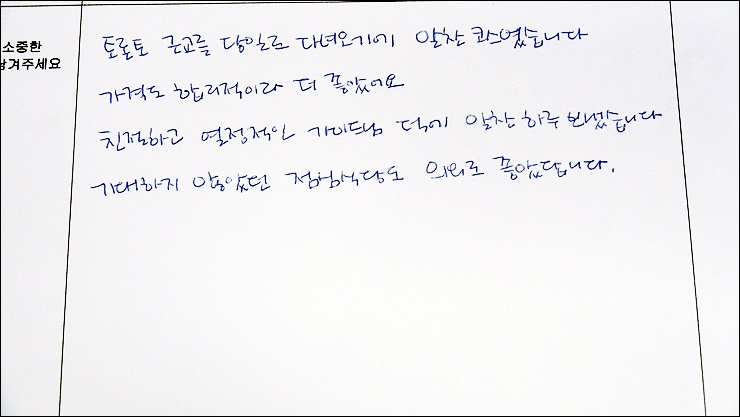 소중한
남겨주세요
토론토 근교를 당일로 다녀오기에 알찬 코스였습니다
가격도 합리적이라 더 좋았어요
친절하고 열정적인 가이드님 덕에 알찬 하루 보냈습니다
기대하지 않았던 점심식당도 의외로 좋았답니다.